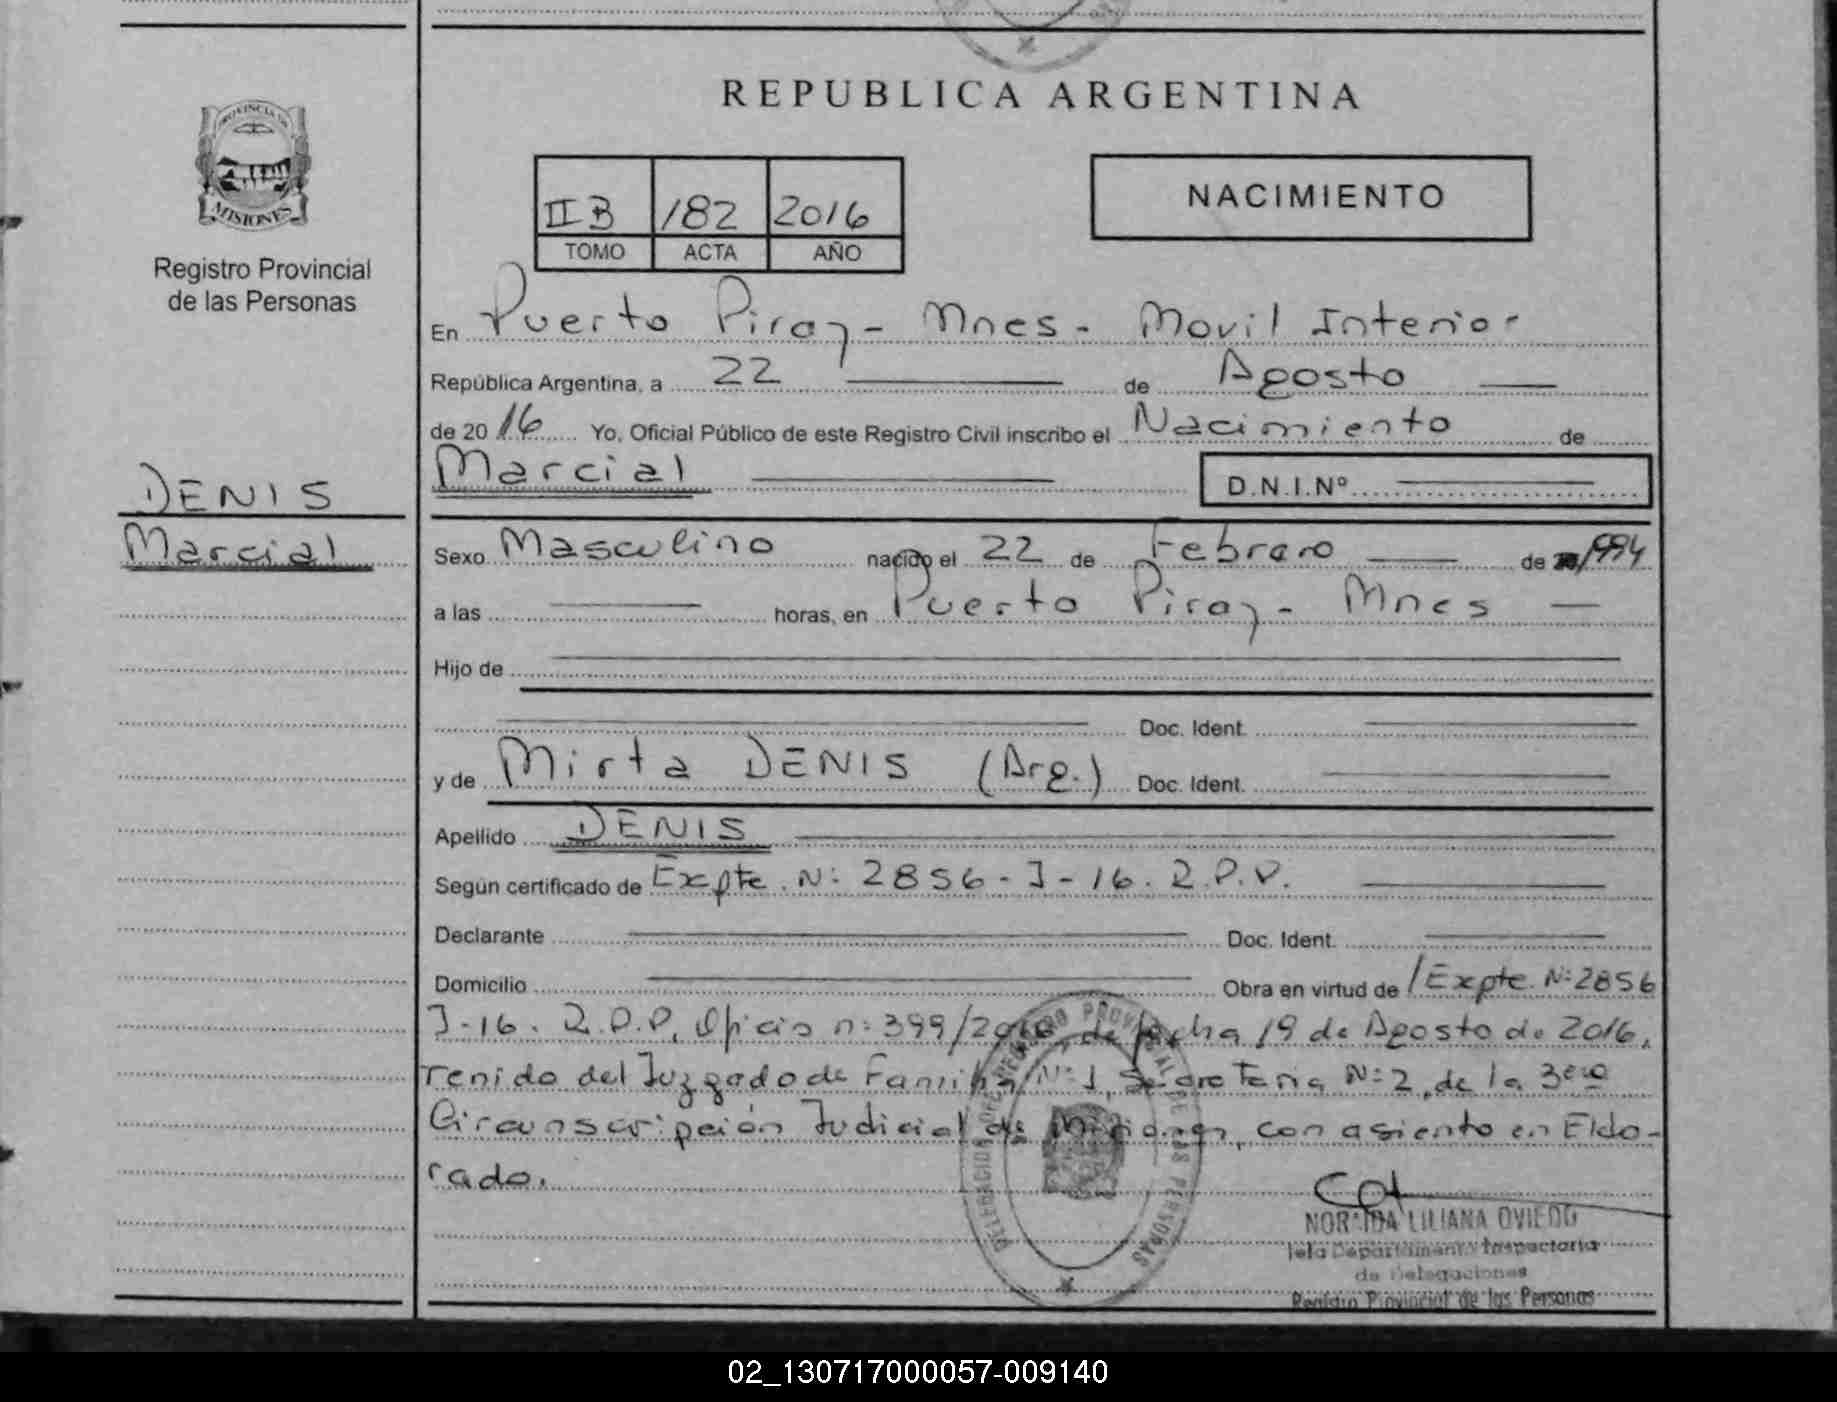 REPUBLICA ARGENTINA
PROVINCIA DE
MISIONES
Registro Provincial
de las Personas
II B 182 2016
TOMO ACTA AÑO
NACIMIENTO
En Puerto Piray - Mnes - Movil Interior
República Argentina, a 22 de Agosto
de 2016 Yo, Oficial Público de este Registro Civil inscribo el Nacimiento de
Marcial D.N.I.Nº
DENIS
Marcial
Sexo Masculino nacido el 22 de Febrero de 1994
a las horas, en Puerto Piray - Mnes
Hijo de
Doc. Ident.
y de Mirta DENIS (Arg.) Doc. Ident.
Apellido DENIS
Según certificado de Expte. N: 2856-J-16. R.P.P.
Declarante Doc. Ident.
Domicilio Obra en virtud de Expte. N: 2856
J-16. R.P.P, Oficio n: 399/2016 de fecha 19 de Agosto de 2016,
renido del Juzgado de Familia N: 1, Secretaria N: 2, de la 3era
Circunscripción Judicial de Misiones, con asiento en Eldo-
rado.
NORMDA LILIANA OVIEDO
Jefa Departamento Inspectoria
de Delegaciones
Registro Provincial de las Personas
02_130717000057-009140